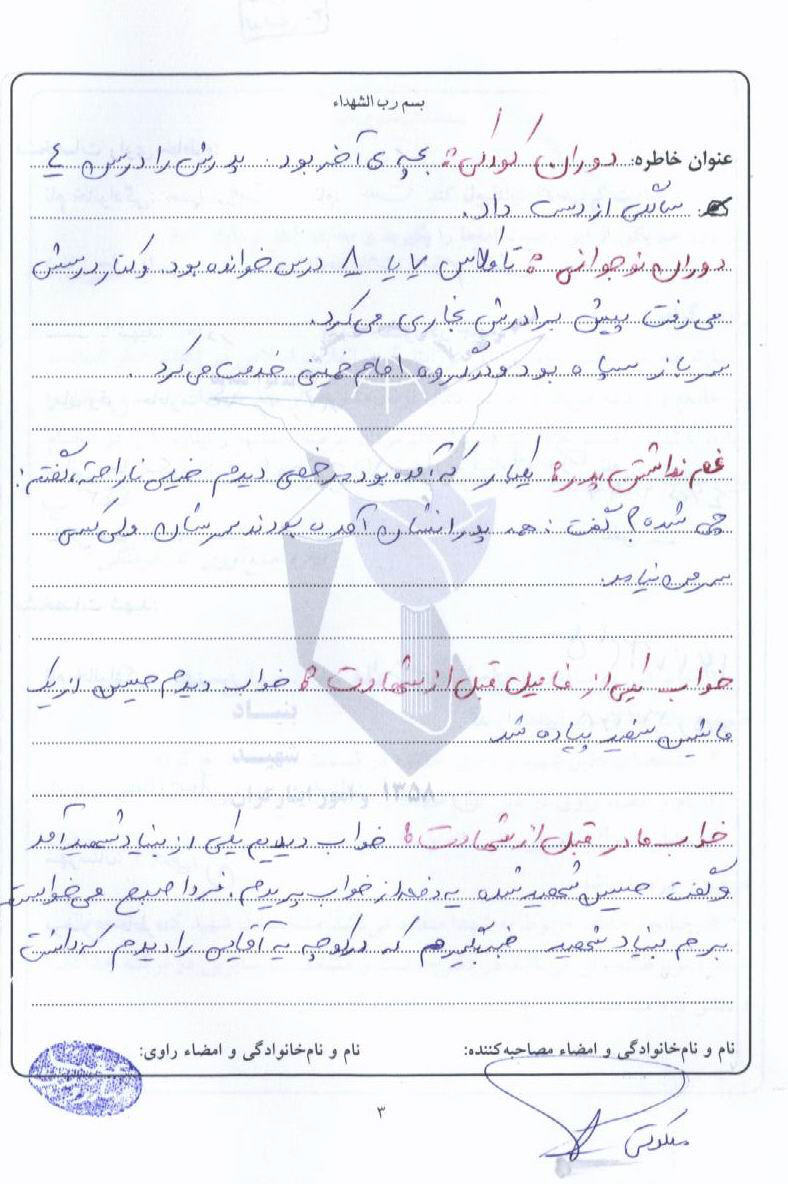 بسم رب الشهداء
عنوان خاطره: دوران کودکی: بچه ی آخر بود. پدرش را در سن ٤
سالگی از دست داد.
دوران نوجوانی: تا کلاس ۷ یا ۸ درس خوانده بود. و کنار درسش
می رفت پیش برادرش نجاری می کرد.
سرباز سپاه بود و در گروه امام خمینی خدمت می کرد.
غم نداشتن پدر: یکبار که آمده بود مرخصی دیدم خیلی ناراحته، گفتم:
چی شده؟ گفت: همه پدرانشان آمده بودند سرشان ولی کسی
سر من نیامد.
خواب یکی از فامیل قبل از شهادت: خواب دیدم حسین از یک
ماشین سفید پیاده شد.
بنیاد
شهید
۱۳۵۸ و امور ایثارگران
خواب مادر قبل از شهادت: خواب دیدم یکی از بنیاد شهید آمد
و گفت حسین شهید شده یه دفعه از خواب پریدم، فردا صبح می خواستم
برم بنیاد شهید خبر بگیرم که در کوچه یه آقایی را دیدم که داشت
نام و نام‌خانوادگی و امضاء مصاحبه‌کننده: نام و نام‌خانوادگی و امضاء راوی:
۳